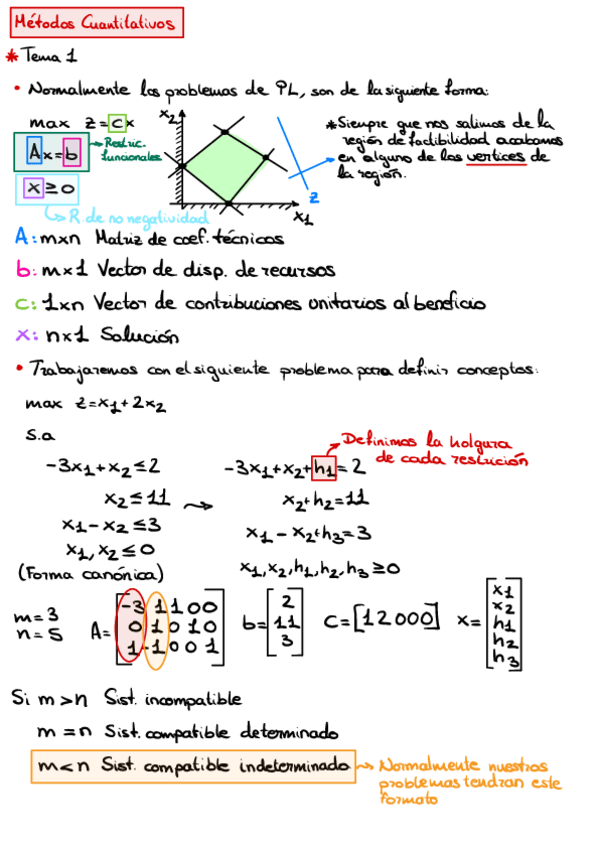 Métodos Cuantitativos
* Tema 1
• Normalmente los problemas de PL, son de la siguiente forma:
max z=cx
Ax=b
→ Restric. funcionales
x≥0
R. de no negatividad
x2
x1
z
*Siempre que nos salimos de la
región de factibilidad acabamos
en alguno de los vertices de
la región.
A: mxn Matriz de coef. técnicos
b: mx1 Vector de disp. de recursos
c: 1xn Vector de contribuciones unitarios al beneficio
x: nx1 Solución
• Trabajaremos con el siguiente problema para definir conceptos:
max z=x1+2x2
s.a
→ Definimos la holgura
de cada restución
-3x1+x2≤2 -3x1+x2+h1=2
x2≤11 → x2+h2=11
x1-x2≤3 x1-x2+h3=3
x1,x2≤0 x1,x2,h1,h2,h3≥0
(Forma canónica)
m=3
n=5
A= [-3 1 1 0 0
0 1 0 1 0
1 -1 0 0 1]
b= [2
11
3]
c=[1 2 0 0 0]
x= [x1
x2
h1
h2
h3]
Si m>n Sist. incompatible
m=n Sist. compatible determinado
m<n Sist. compatible indeterminado → Normalmente nuestros
problemas tendran este
formato